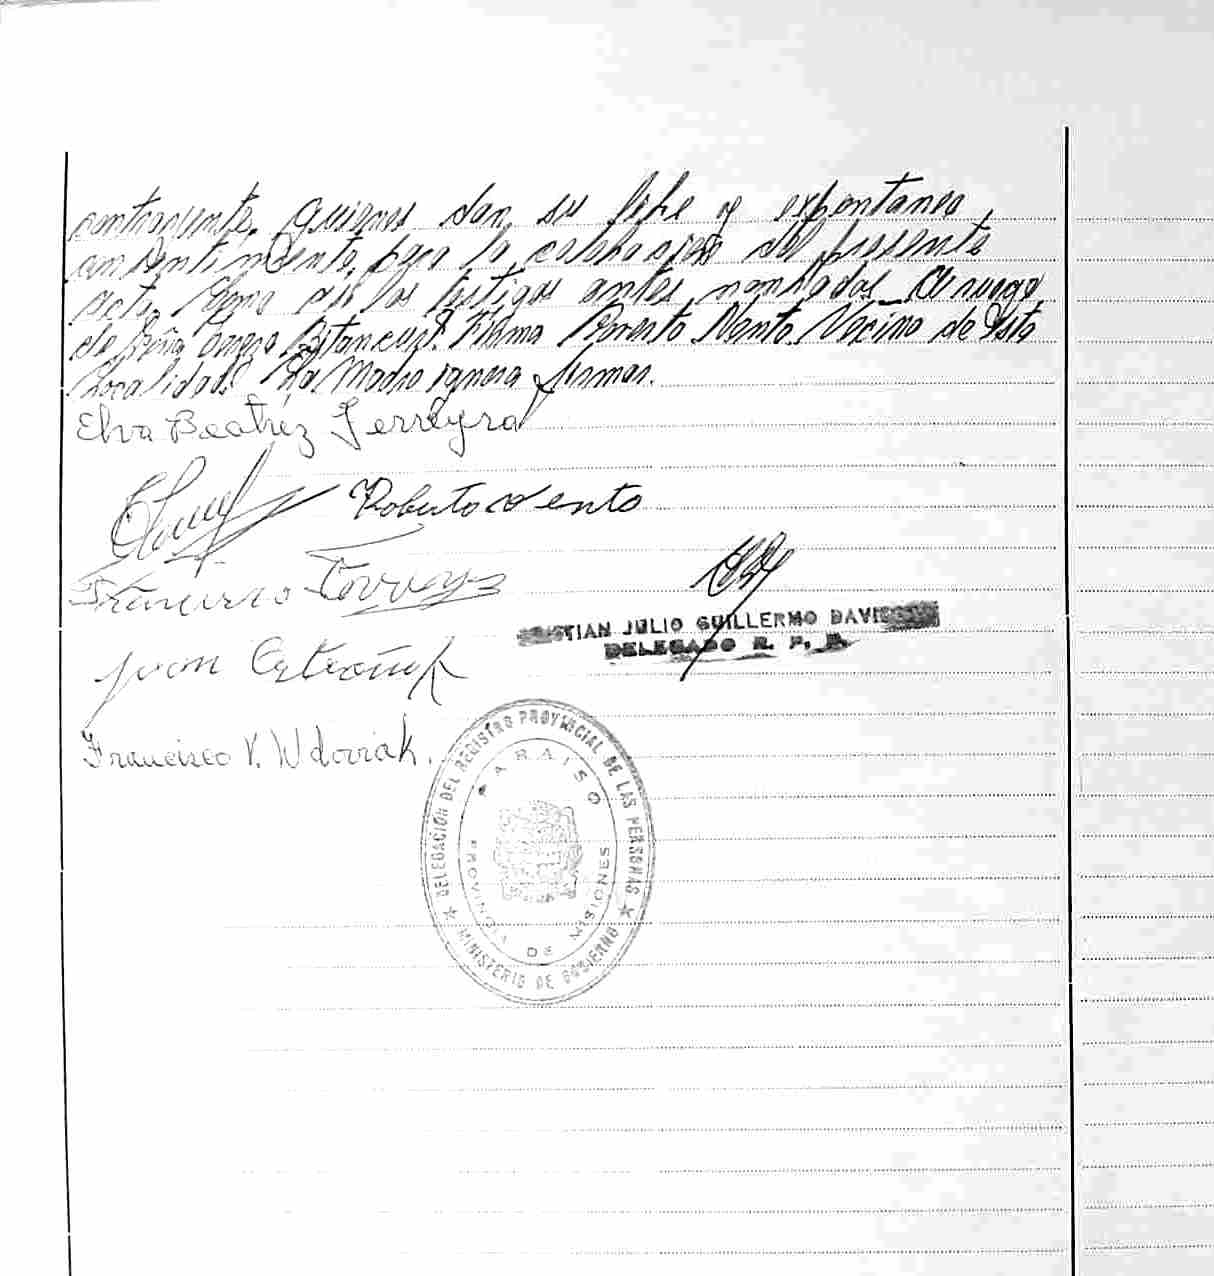 contrayente. quienes dan su libre y expontaneo
consentimiento para la celebración del presente
acto. firma con los testigos antes nombrados_ A ruego
de Betancurt. Firma Roberto Vento. Vecino de Esta
Localidad. La Madre ignora firmar.
Elva Beatrez Ferreyra
Roberto Vento
Francisco
Juan
Francisco V. Wdoviak.
CRISTIAN JULIO GUILLERMO
DELEGADO R. P. P.
DELEGACIÓN DEL REGISTRO PROVINCIAL DE LAS PERSONAS
PARAISO
PROVINCIA DE MISIONES
MINISTERIO DE GOBIERNO